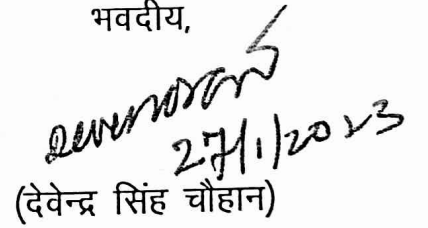 भवदीय,
27/1/2023
(देवेन्द्र सिंह चौहान)